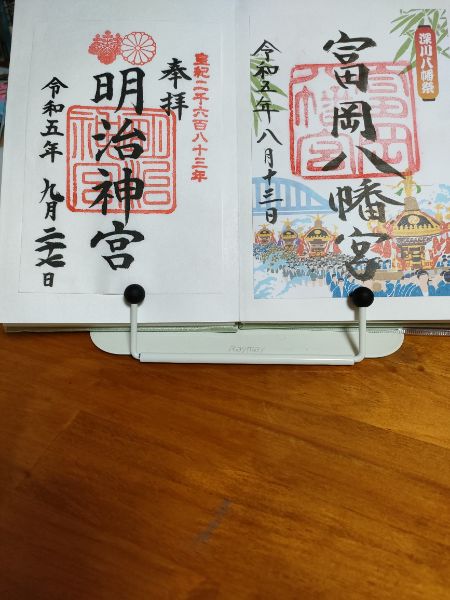 深川八幡祭
富岡八幡宮
富岡八幡宮
令和五年八月十三日
皇紀二千六百八十三年
奉拝
明治神宮
明治神宮
令和五年 九月二十七日
Raymay